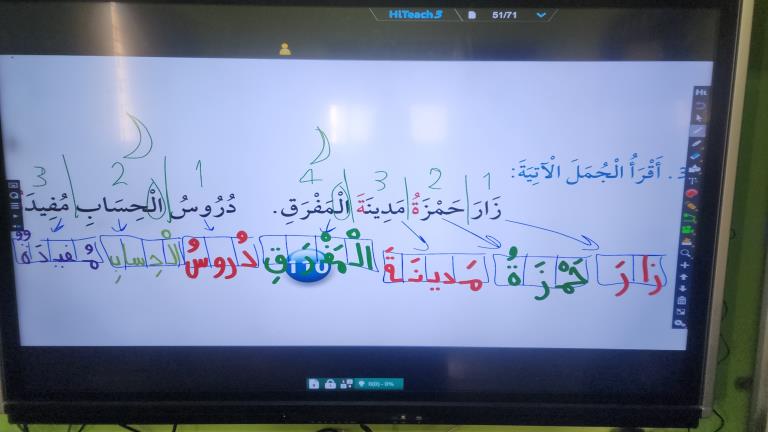 HiTeach5 51/71
3. أَقْرَأُ الْجُمَلَ الْآتِيَةَ:
1 2 3 4 1 2 3
زَارَ حَمْزَةُ مَدِينَةَ الْمَفْرَقِ. دُرُوسُ الْحِسَابِ مُفِيدَ
زَارَ حَمْزَةُ مَدينَةَ الْمَفْرَقِ دُروسُ الْحِسابِ مُفيدَةٌ
0(0) - 0%